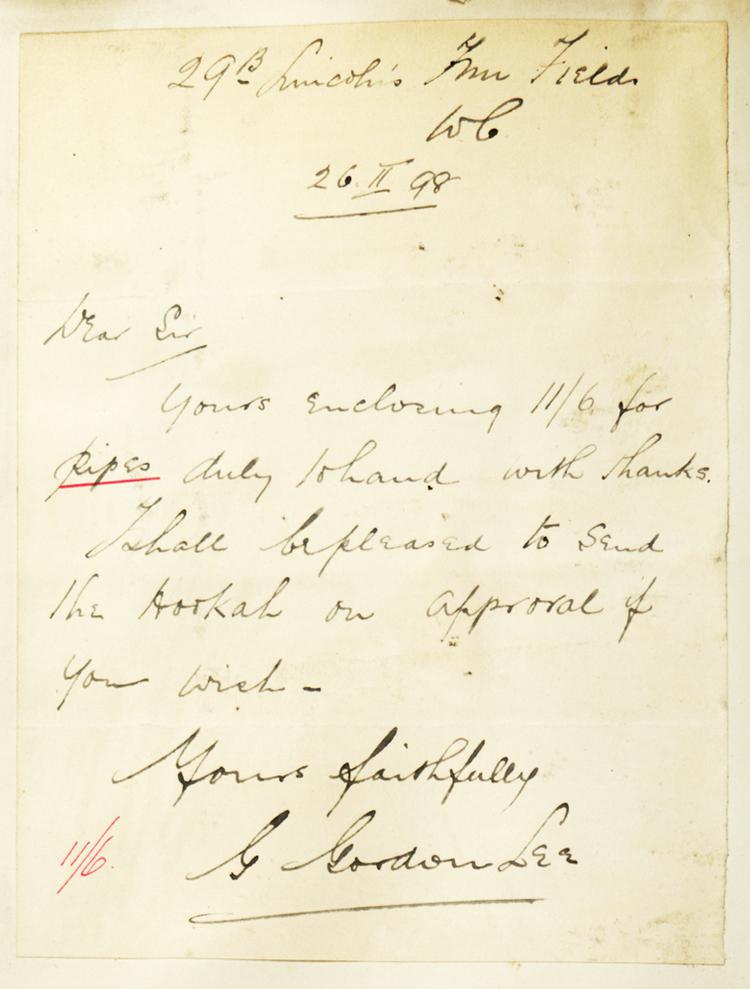 29B Lincoln's Inn Fields
WC
26 II 98
Dear Sir
Yours enclosing 11/6 for
pipes duly to hand with thanks.
I shall be pleased to send
the Hookah on approval if
you wish -
Yours faithfully
G Gordon Lee
11/6.